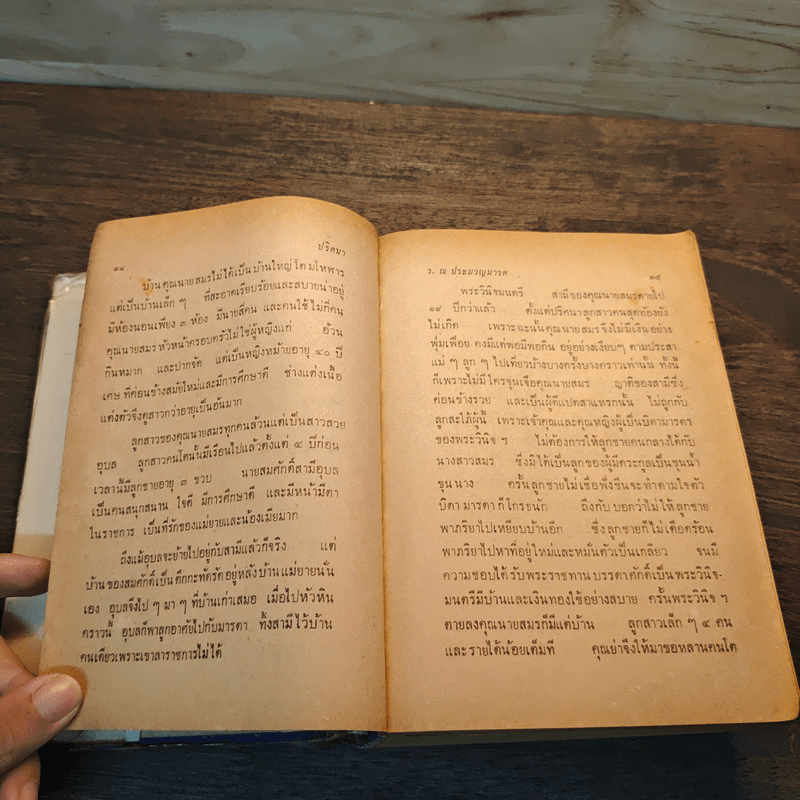 ๑๔
ปริศนา
บ้านคุณนายสมรไม่ได้เป็นบ้านใหญ่โตมโหฬาร
แต่เป็นบ้านเล็กๆ ที่สะอาดเรียบร้อยและสบายน่าอยู่
มีห้องนอนเพียง ๓ ห้อง มีนายสี่คน และคนใช้ไม่กี่คน
คุณนายสมรหัวหน้าครอบครัวไม่ใช่ผู้หญิงแก่ อ้วน
กินหมาก และปากจัด แต่เป็นหญิงหม้ายอายุ ๔๐ ปี
เศษ ที่ค่อนข้างสมัยใหม่และมีการศึกษาดี ช่างแต่งเนื้อ
แต่งตัวจึงดูสาวกว่าอายุเป็นอันมาก
ลูกสาวของคุณนายสมรทุกคนล้วนแต่เป็นสาวสวย
อุบล ลูกสาวคนโตนั้นมีเรือนไปแล้วตั้งแต่ ๔ ปีก่อน
เวลานี้มีลูกชายอายุ ๓ ขวบ นายสมศักดิ์สามีอุบล
เป็นคนสนุกสนาน ใจดี มีการศึกษาดี และมีหน้ามีตา
ในราชการ เป็นที่รักของแม่ยายและน้องเมียมาก
ถึงแม้อุบลจะย้ายไปอยู่กับสามีแล้วก็จริง แต่
บ้านของสมศักดิ์เป็นตึกกะทัดรัดอยู่หลังบ้านแม่ยายนั่น
เอง อุบลจึงไปๆ มาๆ ที่บ้านเก่าเสมอ เมื่อไปหัวหิน
คราวนี้ อุบลก็พาลูกอาศัยไปกับมารดา ทิ้งสามีไว้บ้าน
คนเดียวเพราะเขาลาราชการไม่ได้
ว. ณ ประมวญมารค
๑๕
พระวินิจมนตรี สามีของคุณนายสมรตายไป
๑๙ ปีกว่าแล้ว ตั้งแต่ปริศนาลูกสาวคนสุดท้องยัง
ไม่เกิด เพราะฉะนั้นคุณนายสมรจึงไม่มีเงินอย่าง
พุ่มเฟือย คงมีแต่พอมีพอกิน อยู่อย่างเงียบๆ ตามประสา
แม่ๆ ลูกๆ ไปเที่ยวบ้างบางครั้งบางคราวเท่านั้น ทั้งนี้
ก็เพราะไม่มีใครจุนเจือคุณนายสมร ญาติของสามีซึ่ง
ค่อนข้างรวย และเป็นผู้ดีแปดสาแหรกนั้น ไม่ถูกกับ
ลูกสะใภ้ผู้นี้ เพราะเจ้าคุณและคุณหญิงผู้เป็นบิดามารดา
ของพระวินิจฯ ไม่ต้องการให้ลูกชายคนกลางได้กับ
นางสาวสมร ซึ่งมิได้เป็นลูกของผู้มีตระกูลเป็นขุนน้ำ
ขุนนาง ครั้นลูกชายไม่เชื่อฟังขืนจะทำตามใจตัว
บิดามารดาก็โกรธนัก ถึงกับบอกว่าไม่ให้ลูกชาย
พาภริยาไปเหยียบบ้านอีก ซึ่งลูกชายก็ไม่เดือดร้อน
พาภริยาไปหาที่อยู่ใหม่และหมั่นตัวเป็นเกลียว จนมี
ความชอบได้รับพระราชทานบรรดาศักดิ์เป็นพระวินิจ-
มนตรีมีบ้านและเงินทองใช้อย่างสบาย ครั้นพระวินิจฯ
ตายลงคุณนายสมรก็มีแต่บ้าน ลูกสาวเล็กๆ ๔ คน
และรายได้น้อยเต็มที คุณย่าจึงให้มาขอหลานคนโต